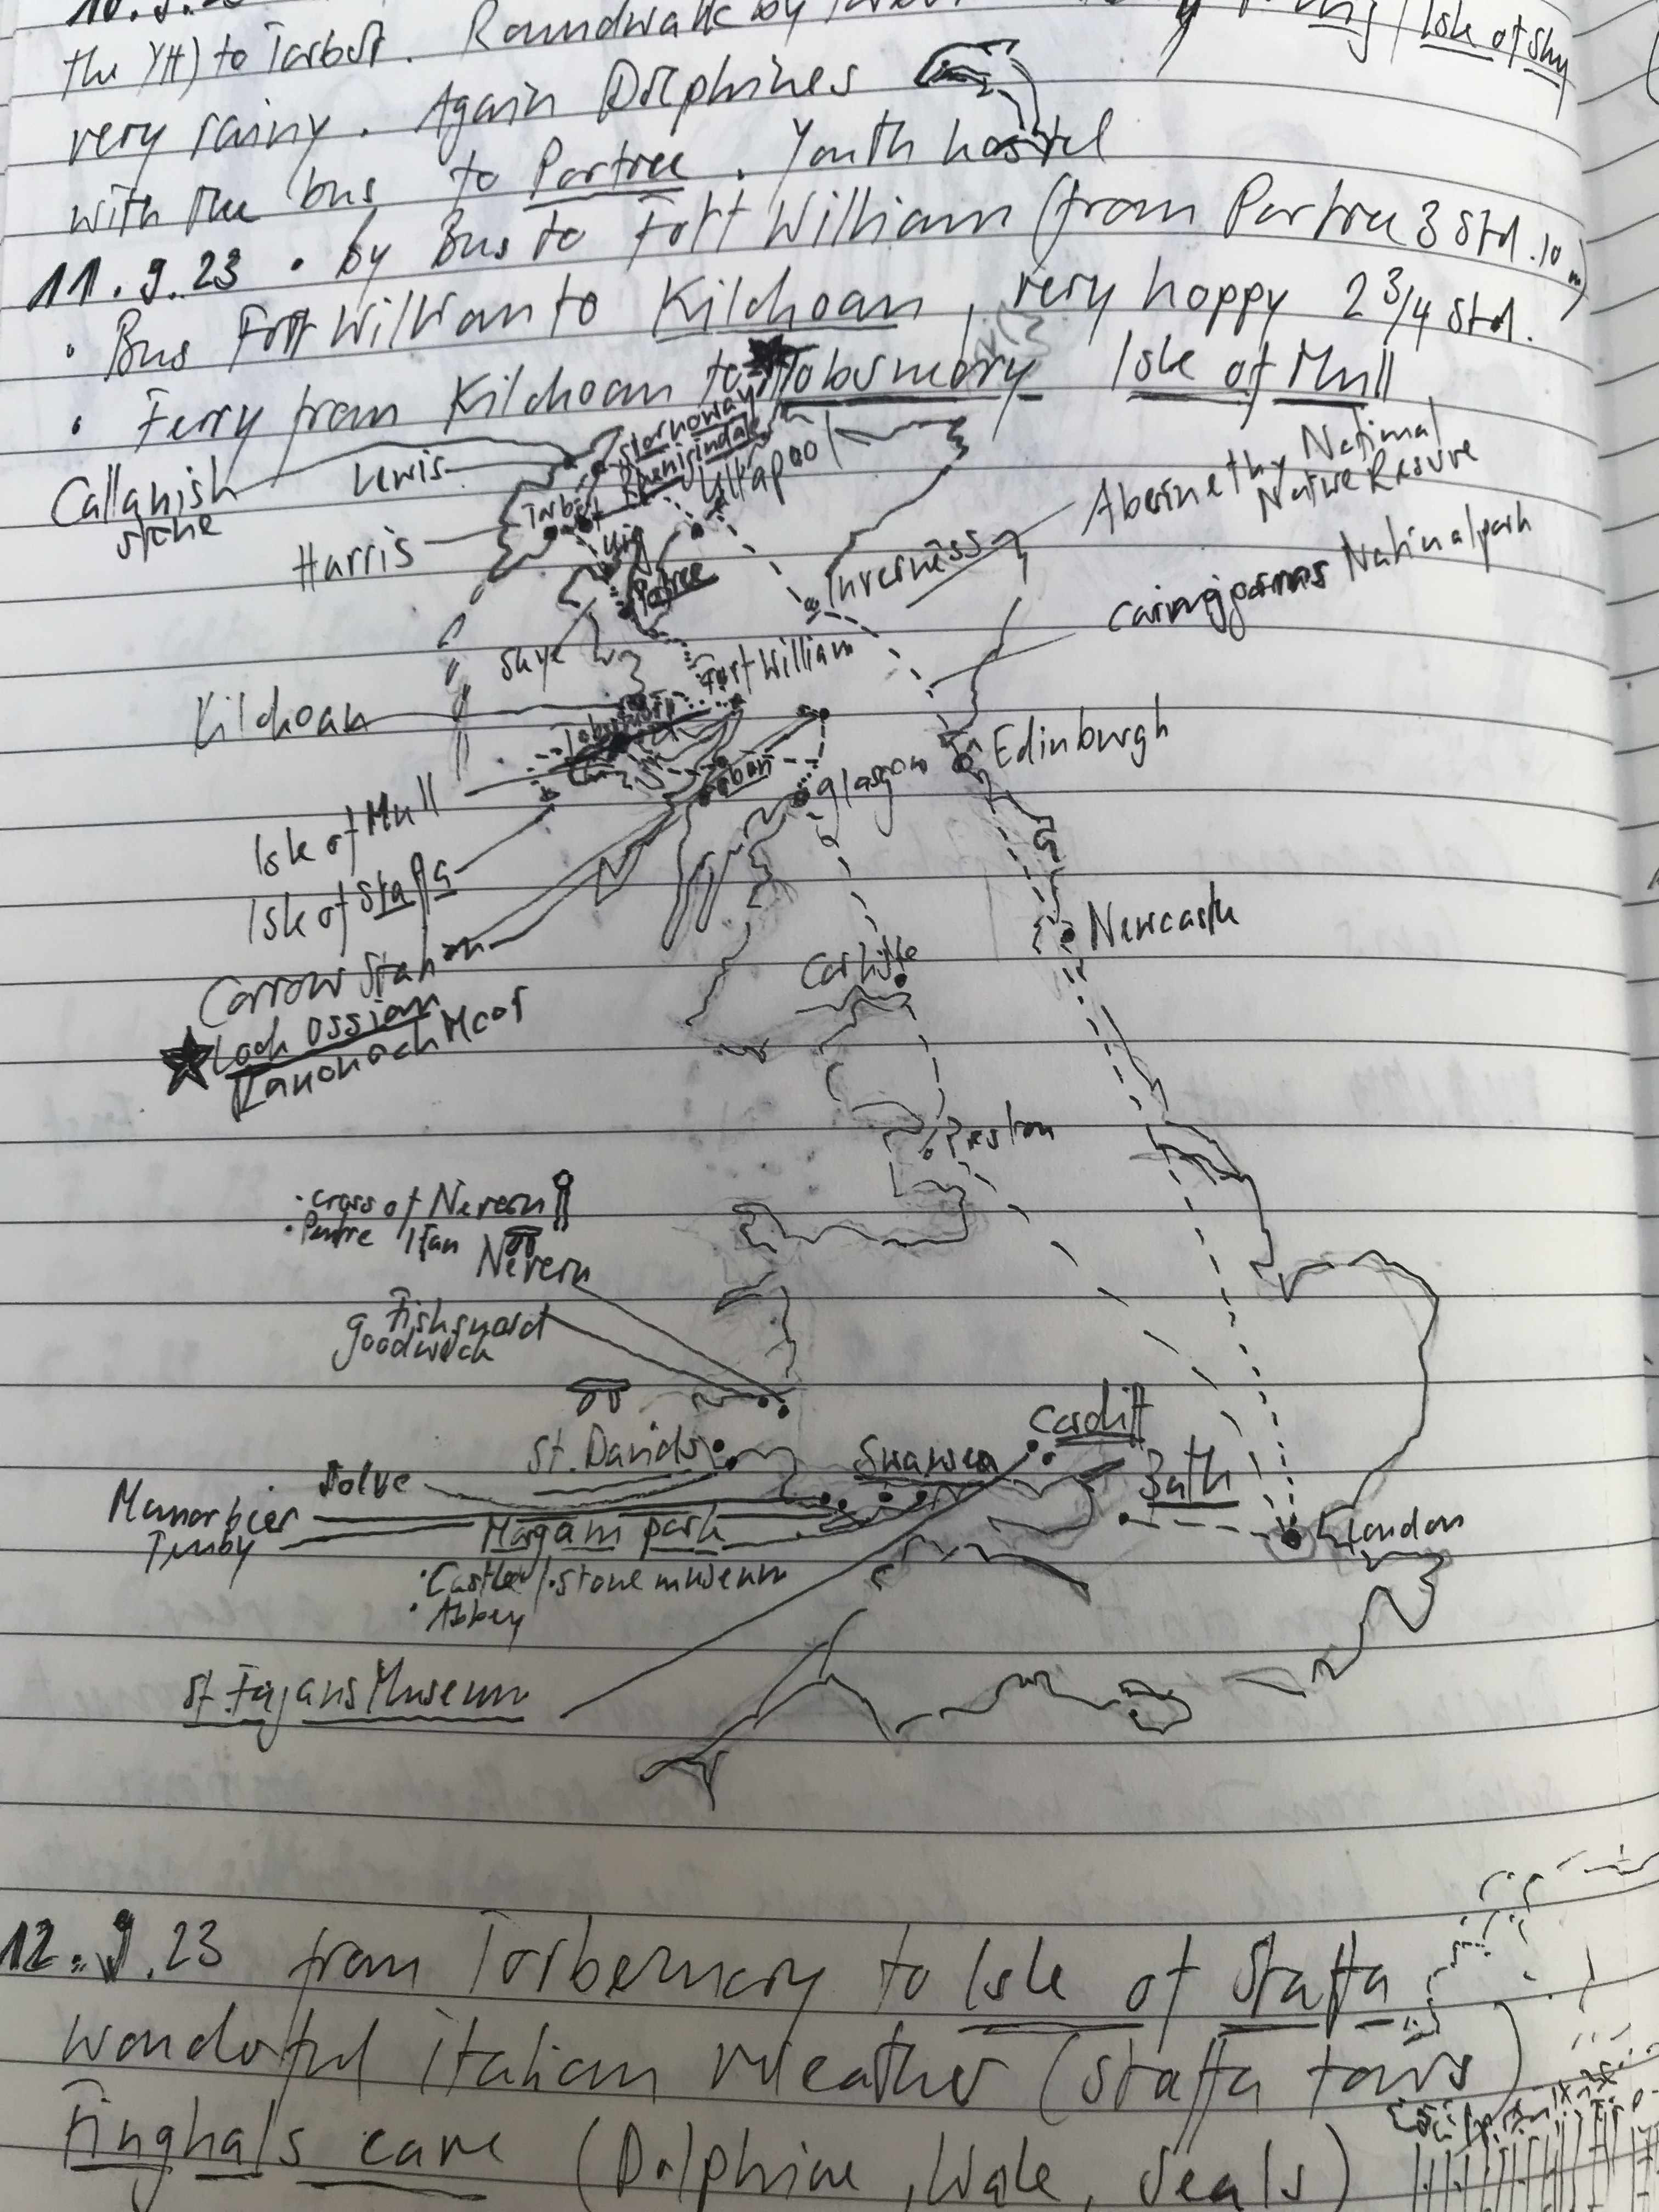 the YH) to Tarbert. Roundwalk by Isle of Sky
very rainy. Again Dolphines
with the bus to Portree. Youth hostel
11.9.23 • by Bus to Fort William (from Portree 3 Std. 10 m)
• Bus Fort William to Kilchoan, very hoppy 2 3/4 Std.
• Ferry from Kilchoan to Tobermory Isle of Mull
Stornoway
Rhenigidale
Ullapool
Callanish
stone
Lewis
Tarbert
Harris
Uig
Portree
Inverness
Abernethy National
Nature Resurve
Cairngorms Nationalpark
Skye
Fort William
Kilchoan
Tobermory
Edinburgh
Oban
Glasgow
Isle of Mull
Isle of Staffa
Newcastle
Corrour Station
Loch Ossian
Rannoch Moor
Carlisle
Preston
• Cross of Nevern
• Pentre Ifan
Nevern
Fishguard
goodwick
St. Davids
Solve
Swansea
Cardiff
Bath
Manorbier
Tenby
Margam park
• Castle/• stone museum
• Abbey
London
St. Fagans Museum
12.9.23 from Torbermory to Isle of Staffa
wonderful italian weather (Staffa tours)
Finghals cave (Dolphine, Wale, Seals)